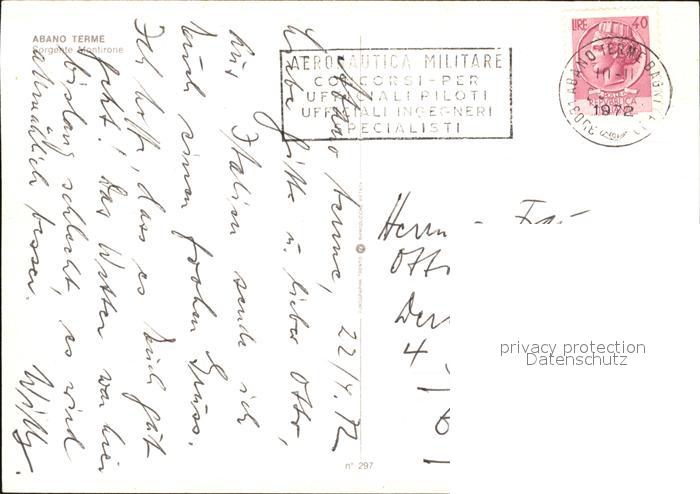 ABANO TERME
Sorgente Montirone
Abano Terme, 22/4.72
Liebe Gitte u. lieber Otto,
Aus Italien sende ich
Euch einen frohen Gruss.
Ich hoffe, dass es Euch gut
geht! Das Wetter war hier
bislang schlecht, es wird
allmählich besser.
Willy.
AERONAUTICA MILITARE
CONCORSI-PER
UFFICIALI PILOTI
UFFICIALI INGEGNERI
SPECIALISTI
LIRE 40
ABANO TERME BAGNI
1972
Herrn - Frau
Otto
4
n° 297
privacy protection
Datenschutz